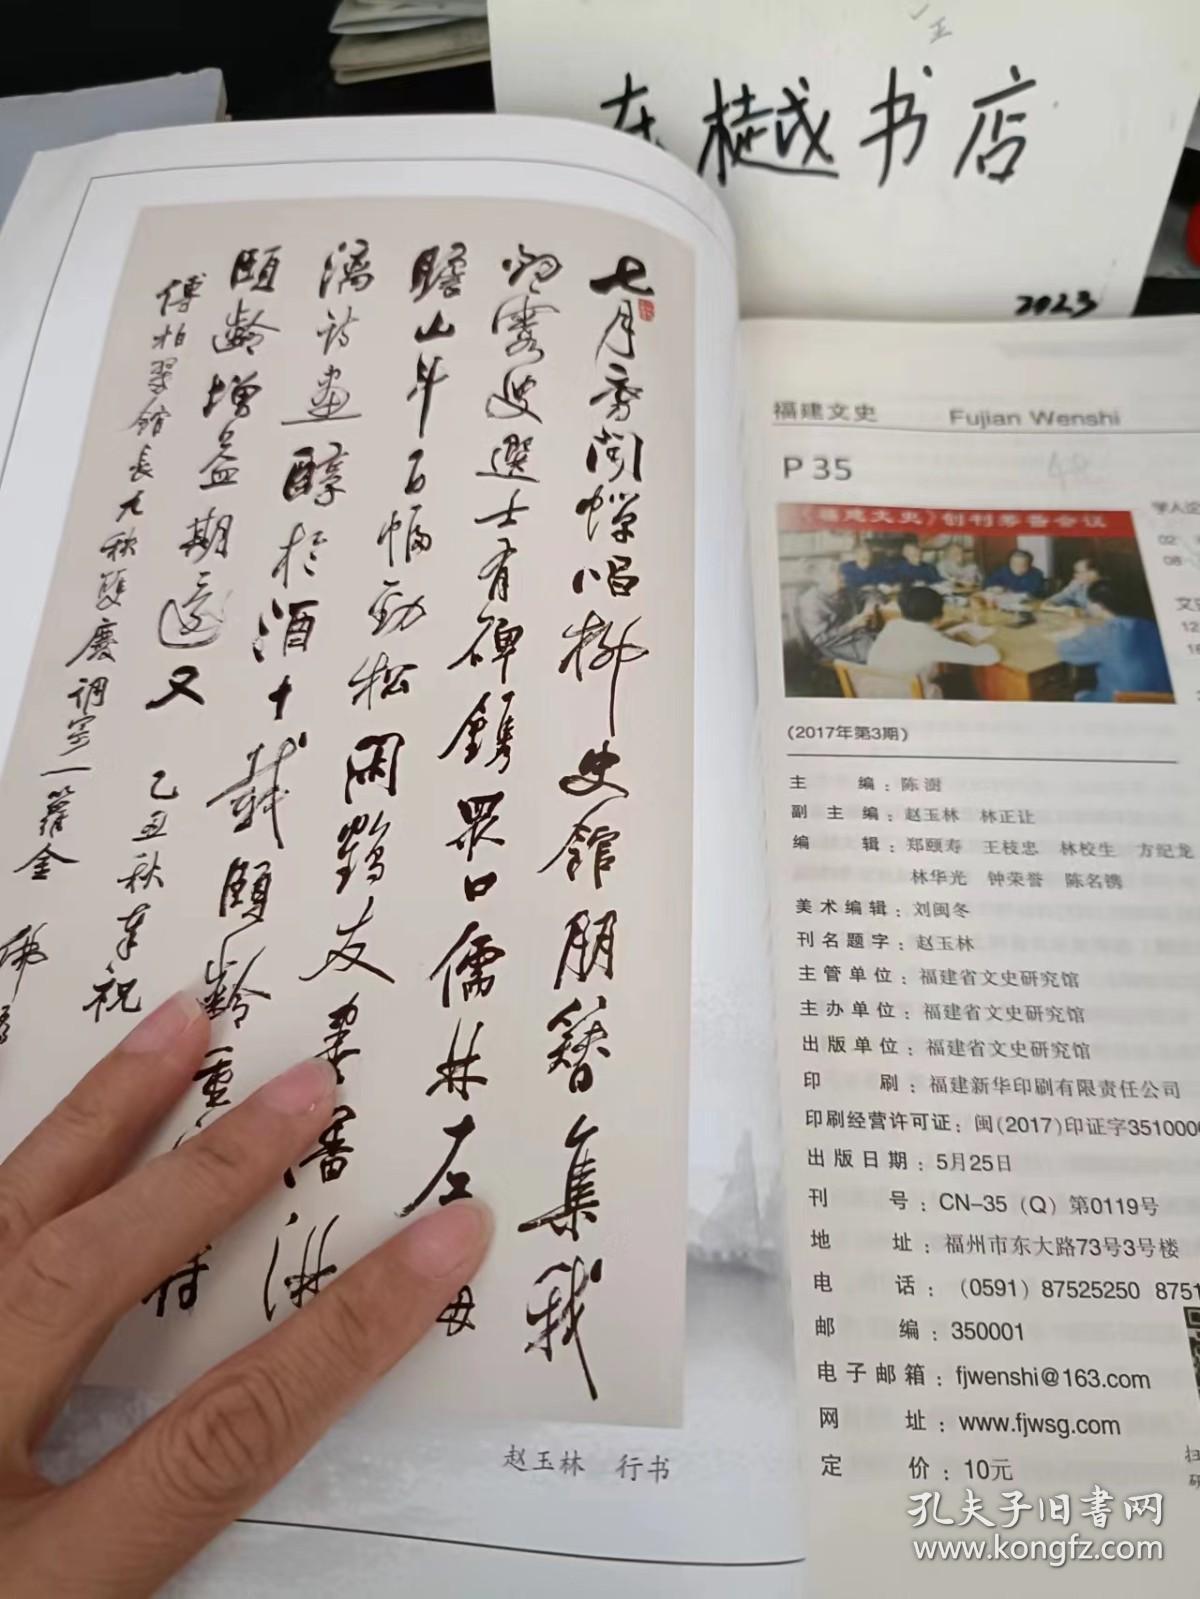 樾书店
2023
七月芳闻蝉唱柳史馆朋簪集我
叟选士有碑镌众口儒林左
瞻山斗百幅劲松闲鹤友
漓诗画醇于酒十载颐龄重
颐龄增益期还又 乙丑秋奉祝
傅柏翠馆长九秩双庆调寄一箩金
赵玉林 行书
福建文史 Fujian Wenshi
P 35
《福建文史》创刊筹备会议
02
08
12
(2017年第3期)
主编：陈澍
副主编：赵玉林 林正让
编辑：郑颐寿 王枝忠 林校生 方纪龙
林华光 钟荣誉 陈名镌
美术编辑：刘闽冬
刊名题字：赵玉林
主管单位：福建省文史研究馆
主办单位：福建省文史研究馆
出版单位：福建省文史研究馆
印刷：福建新华印刷有限责任公司
印刷经营许可证：闽(2017)印证字351000
出版日期：5月25日
刊号：CN-35（Q）第0119号
地址：福州市东大路73号3号楼
电话：(0591) 87525250 8751
邮编：350001
电子邮箱：fjwenshi@163.com
网址：www.fjwsg.com
定价：10元
孔夫子旧书网
www.kongfz.com